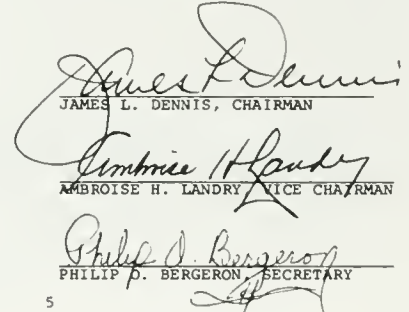 James L Dennis
JAMES L. DENNIS, CHAIRMAN
Ambroise H Landry
AMBROISE H. LANDRY, VICE CHAIRMAN
Philip O. Bergeron
PHILIP O. BERGERON, SECRETARY
5